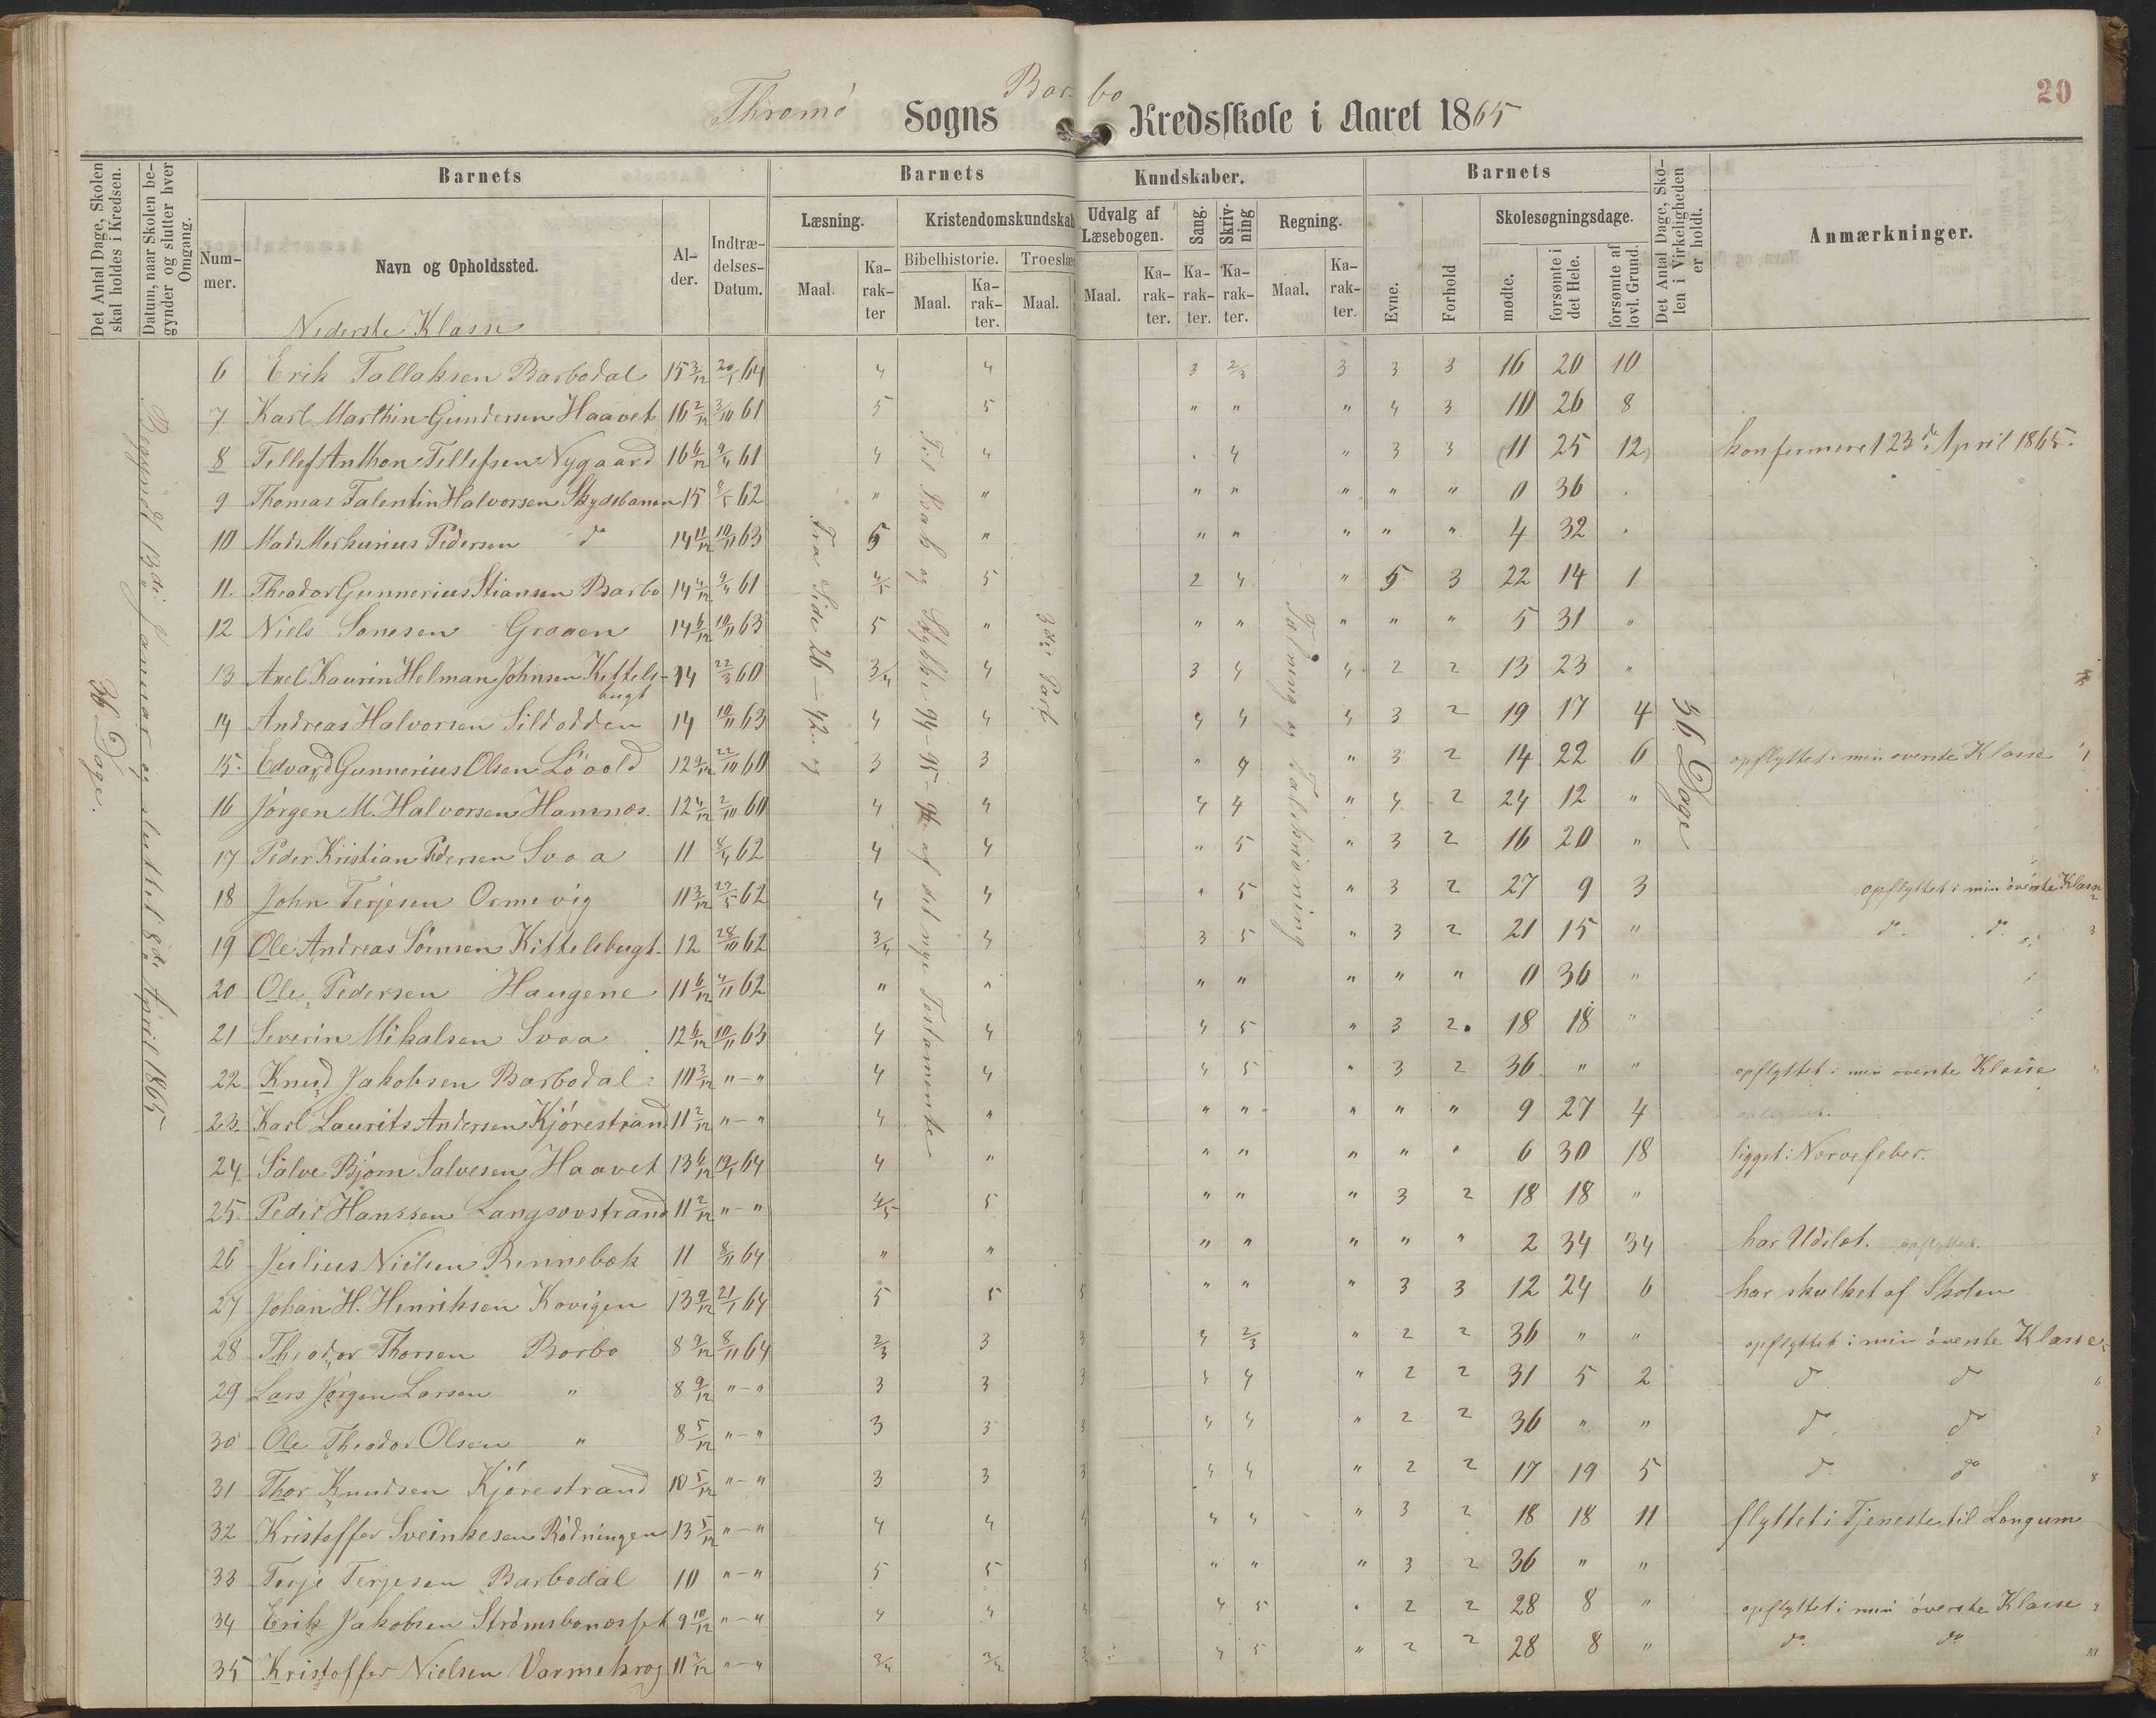 20
Thromø Sogns Barbo Kredsskole i Aaret 1865
Det Antal Dage, Skolen skal holdes i Kredsen.
Datum, naar Skolen begynder og slutter hver Omgang.
Barnets
Barnets Kundskaber.
Barnets
Det Antal Dage, Skolen i Virkeligheden er holdt.
Anmærkninger.
Nummer.
Navn og Opholdssted.
Alder.
Indtrædelses-Datum.
Læsning.
Kristendomskundskab
Udvalg af Læsebogen.
Sang.
Skrivning
Regning.
Evne.
Forhold
Skolesøgningsdage.
Bibelhistorie.
Troeslær
Maal.
Karakter
Maal.
Karakter.
Maal.
Maal.
Karakter.
Karakter.
Karakter.
Maal.
Karakter.
mødte.
forsømte i det Hele.
forsømte af lovl. Grund.
Nederste Klasse
36 Dage.
Begyndt 13de Januar og sluttet 8de April 1865
Fra Side 26 - 42 og
Til Bak og Stykke 94 - 95 - 96 af det nye Testamente
3die Part
Tælning og Talskrivning
36 Dage
6 Erik Tallaksen Barbodal 15 3/12 20/1 64 4 4 3 2/3 3 3 3 16 20 10
7 Karl Marthin Gundersen Haavet 16 2/12 3/10 61 5 5 " " " 4 3 10 26 8
8 Tellef Anthon Tellefsen Nygaard 16 6/12 9/4 61 4 4 . 4 " 3 3 (11 25 12) konfirmeret 23de April 1865.
9 Thomas Talentin Halvorsen Skydebanen 15 9/5 62 " " " " " " " 0 36 .
10 Mads Merkurius Pedersen do 14 11/12 10/11 63 5 " " " " " " 4 32 .
11. Theodor Gunnerius Stiansen Barbo 14 4/12 9/4 61 4/5 5 2 4 " 5 3 22 14 1
12 Niels Sonesen Graaen 14 6/12 10/11 63 5 " " " " " " 5 31 "
13 Axel Kaurin Helman Johnsen Kittelsbugt 14 22/3 60 3/4 4 3 4 4 2 2 13 23 "
14 Andreas Halvorsen Sildodden 14 10/11 63 4 4 4 4 4 3 2 19 17 4
15. Edvard Gunnerius Olsen Lövold 12 9/12 22/10 60 3 3 " 4 " 3 2 14 22 6 opflyttet i min øverste Klasse 1
16 Jørgen M. Halvorsen Hamnæs. 12 4/12 2/10 60 4 4 4 4 " 4 2 24 12 "
17 Peder Kristian Pedersen Svoa 11 8/4 62 4 4 " 5 " 3 2 16 20 "
18 John Terjesen Ormevig 11 3/12 27/5 62 4 4 " 5 " 3 2 27 9 3 opflyttet i min øverste Klasse 2
19 Ole Andreas Sörensen Kittelsbugt. 12 28/10 62 3/4 4 3 5 " 3 2 21 15 " do. do. 3
20 Ole Pedersen Haugene 11 6/12 4/11 62 " " " " " " " 0 36 "
21 Severin Mikalsen Svoa 12 6/12 10/11 63 4 4 4 5 " 3 2. 18 18 "
22 Knud Jakobsen Barbodal 10 3/12 "-" 4 4 4 5 " 3 2 36 " " opflyttet i min øverste Klasse
23. Karl Laurits Andersen Kjörestrand 11 2/12 "-" 4 " " " " " " 9 27 4
24. Salve Bjørn Salvesen Haavet 13 6/12 64 4 " " " " " " 6 30 18 ligget i Nervefeber.
25. Peder Hanssen Langsævstrand 11 2/12 "-" 4/5 5 " " " 3 2 18 18 "
26 Julius Nielsen Rennebæk 11 8/11 64 " " " " " " " 2 34 34 har Udslæt. opflyttet.
27 Johan H. Henriksen Kovigen 13 9/12 21/1 64 5 5 5 " " " 3 3 12 24 6 har skulket af Skolen
28 Theodor Thorsen Barbo 8 9/12 8/11 64 2/3 3 3 4 2/3 " 2 2 36 " " opflyttet i min øverste Klasse
29 Lars Jørgen Larsen " 8 9/12 "-" 3 3 3 4 4 " 2 2 31 5 2 do do
30 Ole Theodor Olsen " 8 5/12 "-" 3 3 3 4 4 " 2 2 36 " " do do
31 Thor Knudsen Kjörestrand 10 5/12 "-" 3 3 3 4 4 " 2 2 17 19 5 do do 8
32 Kristoffer Sveinkesen Rödningen 13 5/12 "-" 4 4 4 4 4 " 3 2 18 18 11 flyttet i Tjeneste til Longum
33 Terje Terjesen Barbodal 10 "-" 5 5 5 " " " 3 2 36 " "
34 Erik Jakobsen Strömsbonæsset 9 10/12 "-" 4 4 4 4 5 " 2 2 28 8 " opflyttet i min øverste Klasse 9
35 Kristoffer Nielsen Varmekrog 11 3/12 "-" 3/4 3/4 3/4 4 5 " 2 2 28 8 " do. do 10